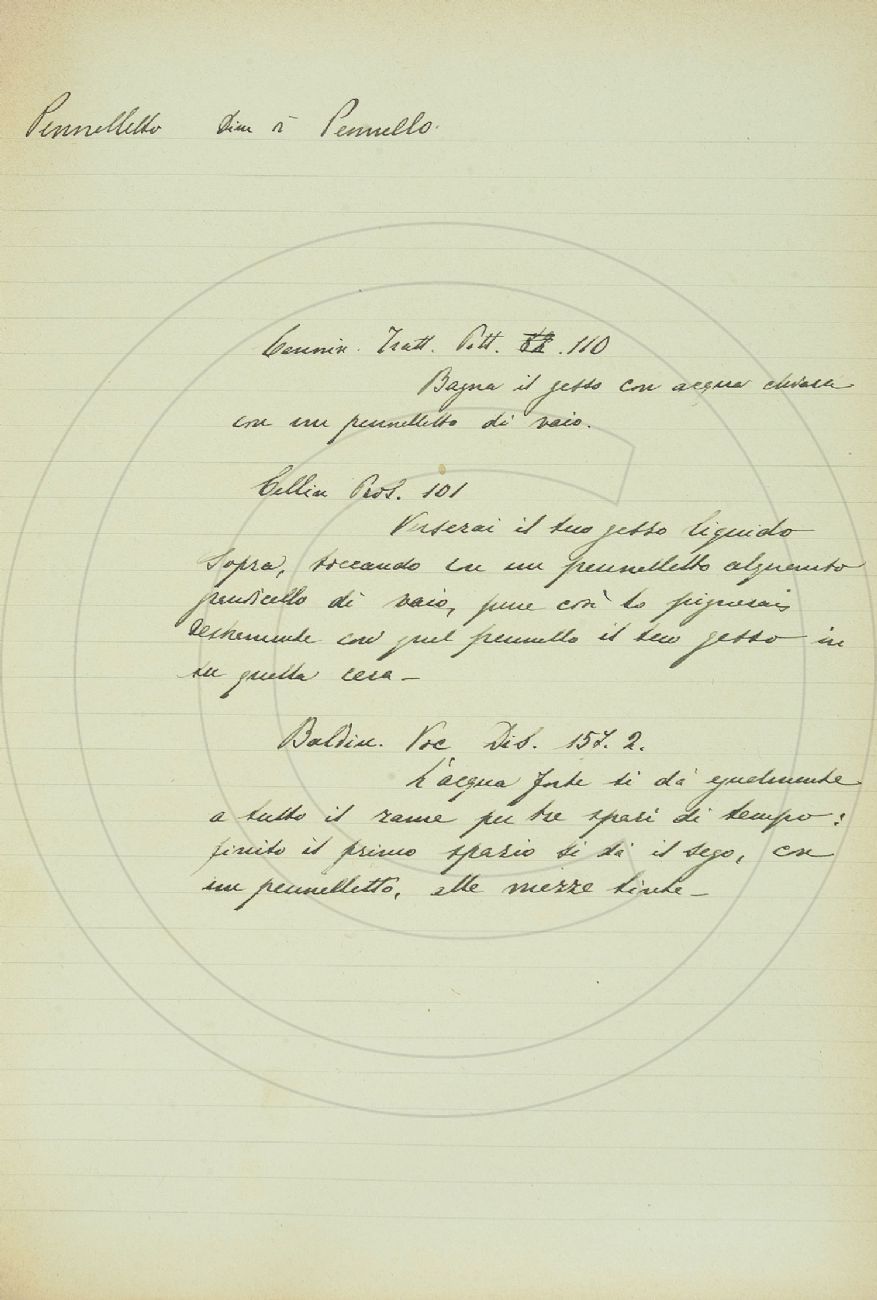 Pennelletto Dim di Pennello.
Cennin. Tratt. Pitt. 110
Bagna il gesso con acqua chiara
con un pennelletto di vaio.
Cellin Pros. 101
Verserai il tuo gesso liquido
sopra, toccando con un pennelletto alquanto
grandicello di vaio, pure così lo pignerai
destramente con quel pennello il tuo gesso in
su quella cera —
Baldin. Voc Dis. 157. 2.
L'acqua forte si dà egualmente
a tutto il rame per tre spazi di tempo:
finito il primo spazio si dà il sego, con
un pennelletto, alle mezze tinte —